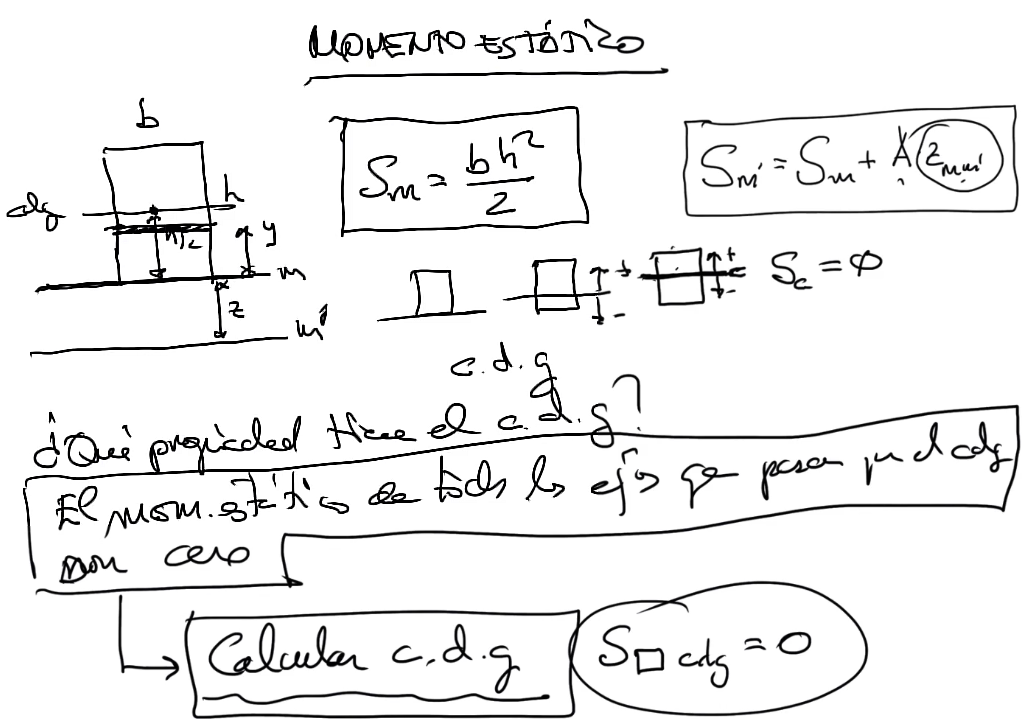 MOMENTO ESTÁTICO
b
h
cdg
h/2
y
m
z
m'
Sm = bh²/2
Sm' = Sm + A Zmm'
+
-
+
-
c
Sc = Ø
c.d.g
¿Qué propiedad tiene el c.d.g?
El mom. estático de todos los ejes que pasan por el cdg
son cero
Calcular c.d.g
S□ cdg = 0